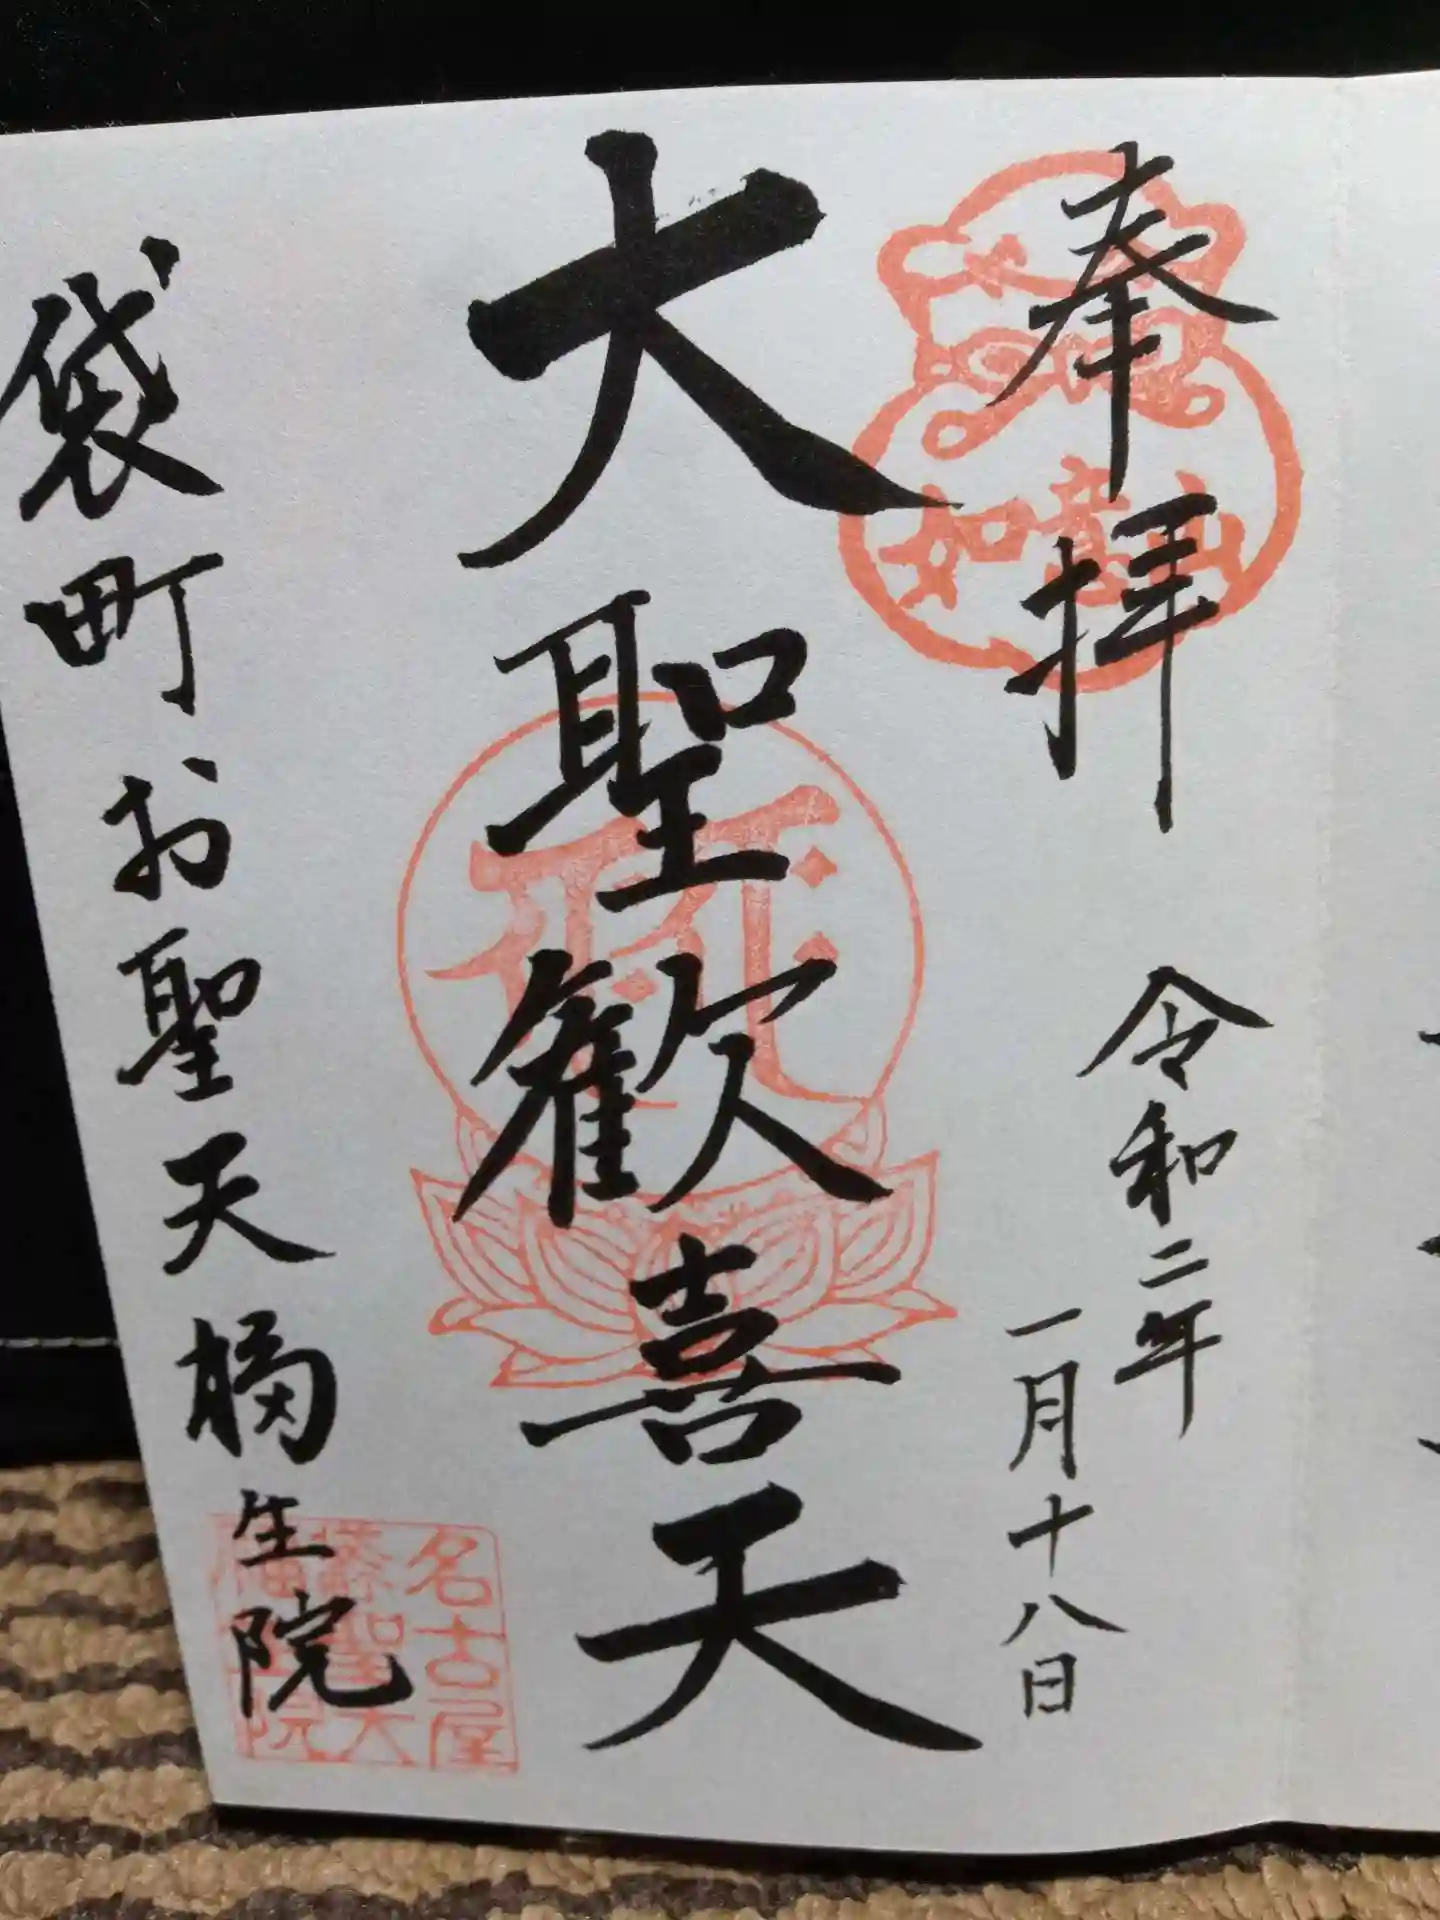 奉拝
令和二年
一月十八日
如意山
大聖歓喜天
袋町お聖天福生院
名古屋
聖天
院